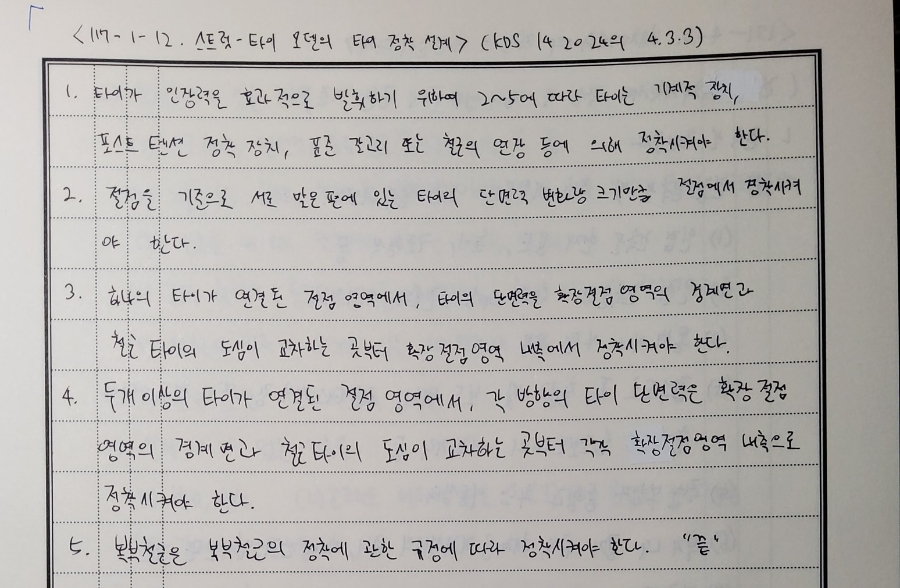 <117-1-12. 스트럿-타이 모델의 타이 정착 설계> (KDS 14 20 24의 4.3.3)
1. 타이가 인장력을 효과적으로 발휘하기 위하여 2~5에 따라 타이는 기계적 장치,
포스트 텐션 정착 장치, 표준 갈고리 또는 철근의 연장 등에 의해 정착시켜야 한다.
2. 절점을 기준으로 서로 맞은편에 있는 타이의 단면력 변화량 크기만큼 절점에서 정착시켜
야 한다.
3. 하나의 타이가 연결된 절점 영역에서, 타이의 단면력을 확장절점 영역의 경계면과
철근 타이의 도심이 교차하는 곳부터 확장 절점 영역 내측에서 정착시켜야 한다.
4. 두개 이상의 타이가 연결된 절점 영역에서, 각 방향의 타이 단면력은 확장 절점
영역의 경계 면과 철근타이의 도심이 교차하는 곳부터 각각 확장절점영역 내측으로
정착시켜야 한다.
5. 복부철근은 복부철근의 정착에 관한 규정에 따라 정착시켜야 한다. "끝"